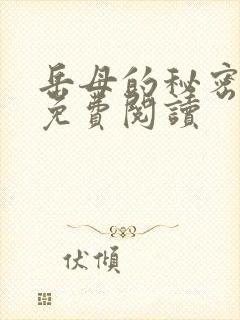 岳母的秘密
免費閱讀
伏傾